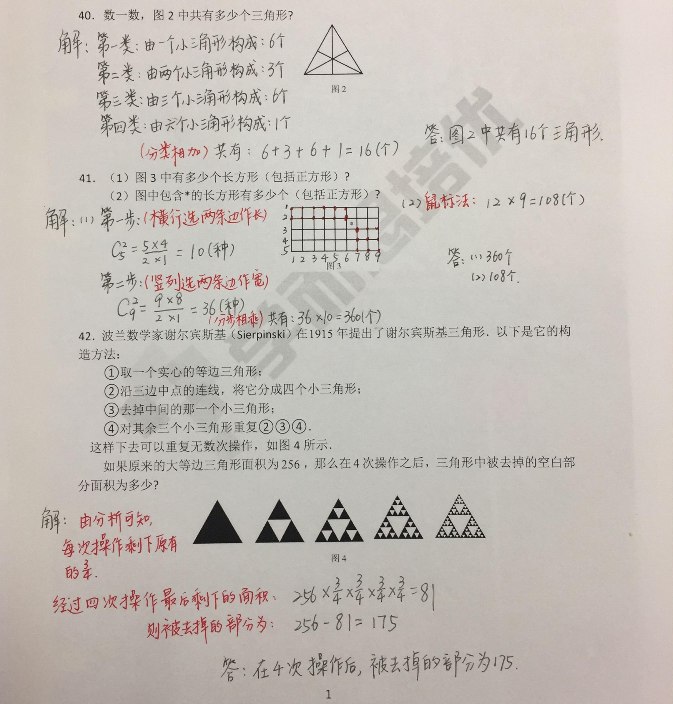 40. 数一数，图 2 中共有多少个三角形？
解：第一类：由一个小三角形构成：6个
第二类：由两个小三角形构成：3个
第三类：由三个小三角形构成：6个
第四类：由六个小三角形构成：1个
(分类相加) 共有：6+3+6+1=16(个)
图 2
答：图2中共有16个三角形.
41. （1）图 3 中有多少个长方形（包括正方形）？
（2）图中包含*的长方形有多少个（包括正方形）？
解：(1) 第一步：(横行选两条边作长)
C₅²=5×4/2×1=10(种)
第二步：(竖列选两条边作宽)
C₉²=9×8/2×1=36(种)
(分步相乘) 共有：36×10=360(个)
1
2
3
4
5
1 2 3 4 5 6 7 8 9
图 3
(2) 鼠标法：12×9=108(个)
答：(1) 360个
(2) 108个.
42. 波兰数学家谢尔宾斯基（Sierpinski）在1915 年提出了谢尔宾斯基三角形．以下是它的构
造方法：
①取一个实心的等边三角形；
②沿三边中点的连线，将它分成四个小三角形；
③去掉中间的那一个小三角形；
④对其余三个小三角形重复②③④．
这样下去可以重复无数次操作，如图 4 所示．
如果原来的大等边三角形面积为 256，那么在 4 次操作之后，三角形中被去掉的空白部
分面积为多少？
解：由分析可知,
每次操作剩下原有
的3/4.
图 4
经过四次操作最后剩下的面积：256×3/4×3/4×3/4×3/4=81
则被去掉的部分为：256-81=175
答：在4次操作后, 被去掉的部分为175.
1